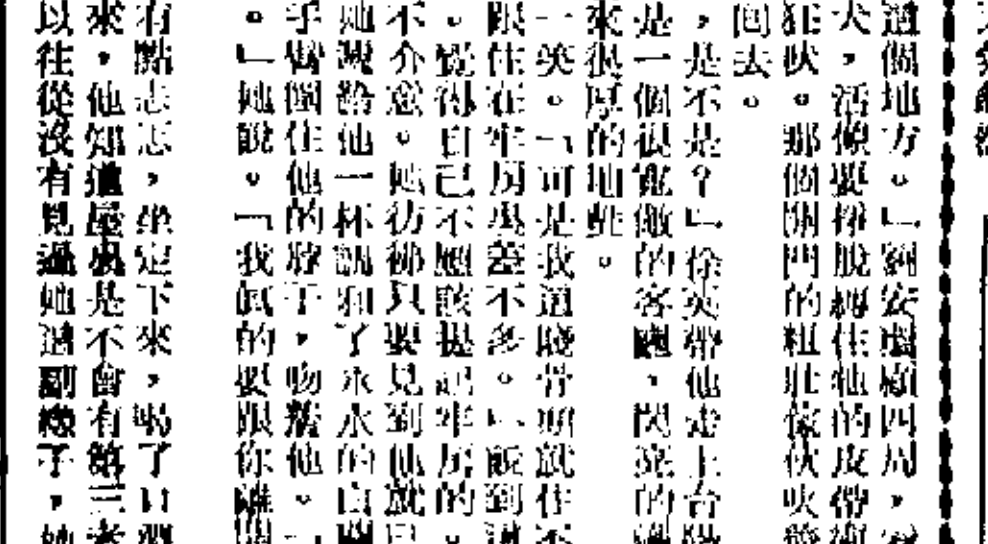 這個地方。」劉安環顧四周，
犬，活像要掙脫縛住牠的皮帶
狂吠。那個關門的粗壯傢伙吠
回去。
，是不是？」徐英帶他走上台階
是一個很寬敞的客廳，閃亮的
來很厚的地氈。
一笑。「可是我這賤骨頭就住不
跟住在牢房裏差不多。」說到這
。覺得自己不應該提起牢房的。
不介意。她彷彿只要見到他就已
她遞給他一杯調和了冰水的白蘭
手臂圈住他的脖子，吻着他。「
。」她說。「我真的要跟你離開
有點忐忑，坐定下來，喝了口
來，他知道屋裏是不會有第三者
以往從沒有見過她這副樣子，她